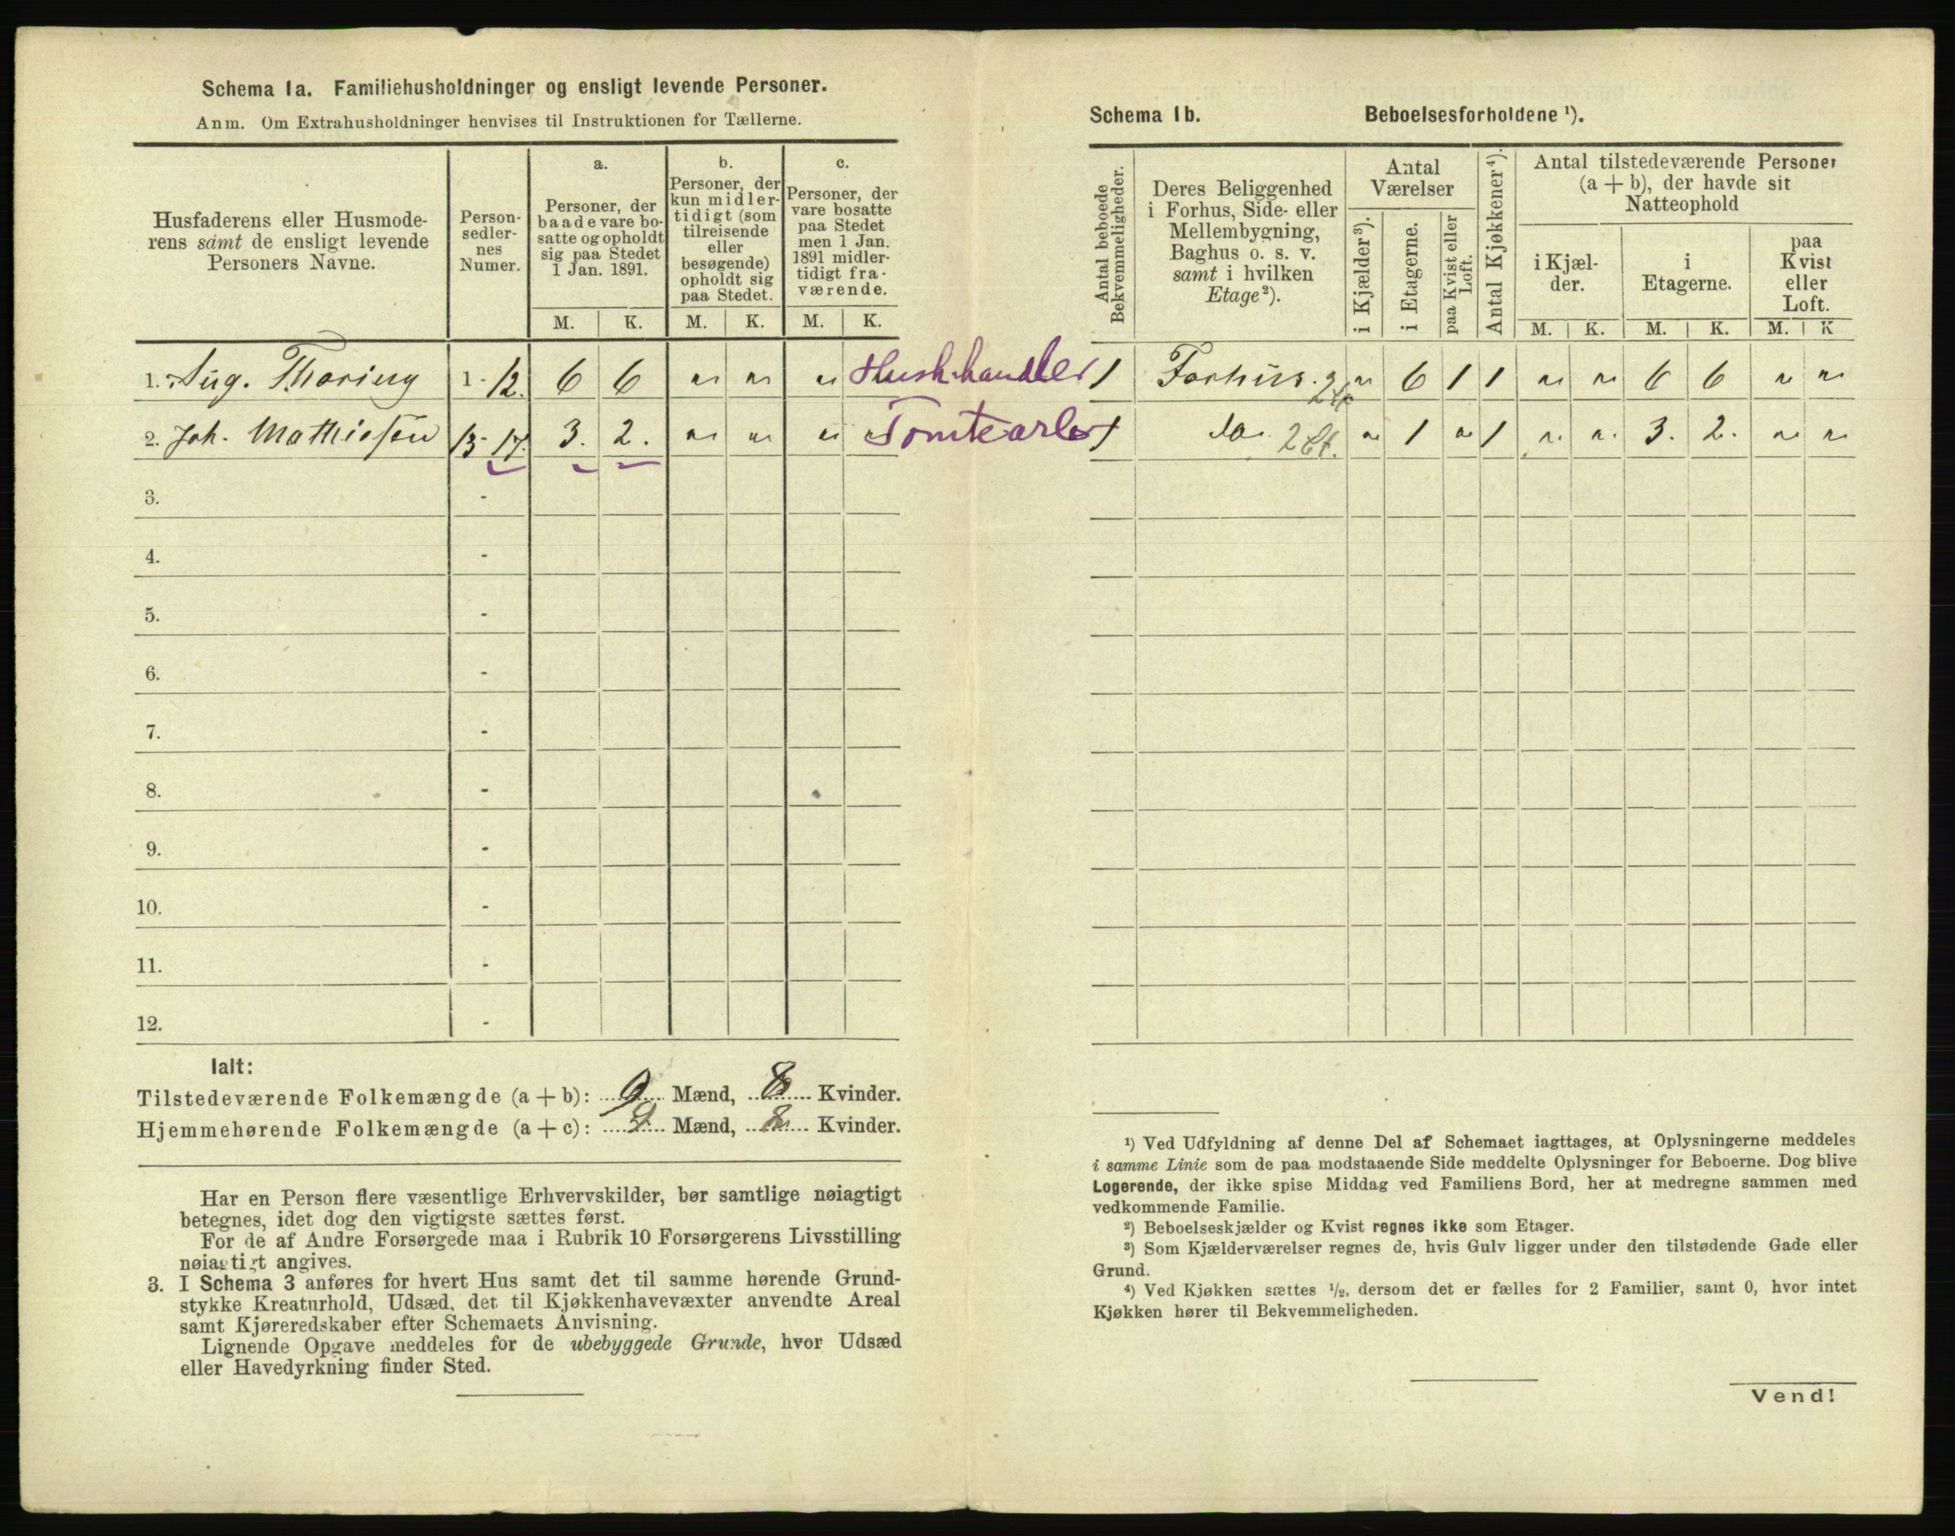 Schema 1a. Familiehusholdninger og ensligt levende Personer.
Anm. Om Extrahusholdninger henvises til Instruktionen for Tællerne.
Husfaderens eller Husmode-
rens samt de ensligt levende
Personers Navne.
Person-
sedler-
nes
Numer.
a.
Personer, der
baade vare bo-
satte og opholdt
sig paa Stedet
1 Jan. 1891.
b.
Personer, der
kun midler-
tidigt (som
tilreisende
eller
besøgende)
opholdt sig
paa Stedet.
c.
Personer, der
vare bosatte
paa Stedet
men 1 Jan.
1891 midler-
tidigt fra-
værende.
M. K. M. K. M. K.
1. Aug. Thoring 1-12. 6 6 " " "
2. Joh. Mathiesen 13-17. 3. 2. " " " "
3. -
4. -
5. -
6. -
7. -
8. -
9. -
10. -
11. -
12. -
Ialt:
Tilstedeværende Folkemængde (a + b): 9 Mænd, 8 Kvinder.
Hjemmehørende Folkemængde (a + c): 9 Mænd, 8 Kvinder.
Har en Person flere væsentlige Erhvervskilder, bør samtlige nøiagtigt
betegnes, idet dog den vigtigste sættes først.
For de af Andre Forsørgede maa i Rubrik 10 Forsørgerens Livsstilling
nøiagtigt angives.
3. I Schema 3 anføres for hvert Hus samt det til samme hørende Grund-
stykke Kreaturhold, Udsæd, det til Kjøkkenhavevæxter anvendte Areal
samt Kjøreredskaber efter Schemaets Anvisning.
Lignende Opgave meddeles for de ubebyggede Grunde, hvor Udsæd
eller Havedyrkning finder Sted.
Schema 1b. Beboelsesforholdene ¹).
Antal beboede
Bekvemmeligheder.
Deres Beliggenhed
i Forhus, Side- eller
Mellembygning,
Baghus o. s. v.
samt i hvilken
Etage²).
Antal
Værelser
i Kjælder³).
i Etagerne.
paa Kvist eller
Loft.
Antal Kjøkkener⁴).
Antal tilstedeværende Personer
(a + b), der havde sit
Natteophold
i Kjæl-
der.
i
Etagerne.
paa
Kvist
eller
Loft.
M. K. M. K. M. K
1 Forhus. " 6 1 1 " " 6 6 " "
1 do. 2 Et. " 1 " 1 " " 3. 2. " "
¹) Ved Udfyldning af denne Del af Schemaet iagttages, at Oplysningerne meddeles
i samme Linie som de paa modstaaende Side meddelte Oplysninger for Beboerne. Dog blive
Logerende, der ikke spise Middag ved Familiens Bord, her at medregne sammen med
vedkommende Familie.
²) Beboelseskjælder og Kvist regnes ikke som Etager.
³) Som Kjælderværelser regnes de, hvis Gulv ligger under den tilstødende Gade eller
Grund.
⁴) Ved Kjøkken sættes ½, dersom det er fælles for 2 Familier, samt 0, hvor intet
Kjøkken hører til Bekvemmeligheden.
Vend!